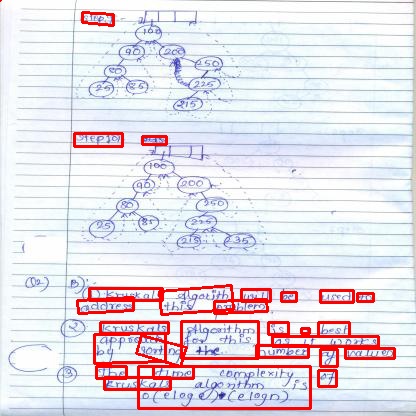 100
90 200
80 250
25 85 225
215
Step 10
100
90 200
80 250
25 85 225
215 235
Q2) B)
1) Kruskals algorith will be used to
address this problem
2 Kruskals Algorithm is a best
approach for this as it works
by sorting the number of values
3 The time complexity of
Kruskals algorithm is
O(eloge) + (elogn)